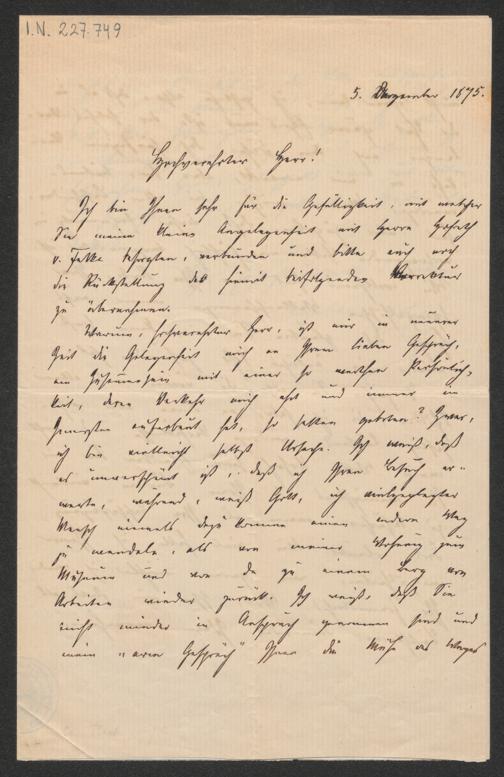 I.N. 227.749
5. Dezember 1875.
Hochverehrter Herr!
Ich bin Ihnen sehr für die Gefälligkeit, mit welcher
Sie meine kleine Angelegenheit mit Herrn Hofrath
v. Falke besorgten, verbunden und bitte auch noch
die Rückstellung des hiemit beifolgenden
zu übernehmen.
Warum, hochverehrter Herr, ist mir in neuerer
Zeit die Gelegenheit mich an Ihrem lieben Gespräch,
am Zusammensein mit einer so werthen Persönlich-
keit, deren Verkehr mich ehrt und immer im
Innersten erfreut hat, so selten geboten? Zwar,
ich bin vielleicht selbst Ursache. Ich weiß, daß
es unverschämt ist, daß ich Ihren Besuch er-
warte, während, weiß Gott, ich vielgeplagter
Mensch niemals dazu komme einen andern Weg
zu wandeln, als von meiner Wohnung zum
Museum und von da zu einem Berg von
Arbeiten wieder zurück. Ich weiß, daß Sie
nicht minder in Anspruch genommen sind und
mein Gespräch" Ihnen die Mühe des Weges